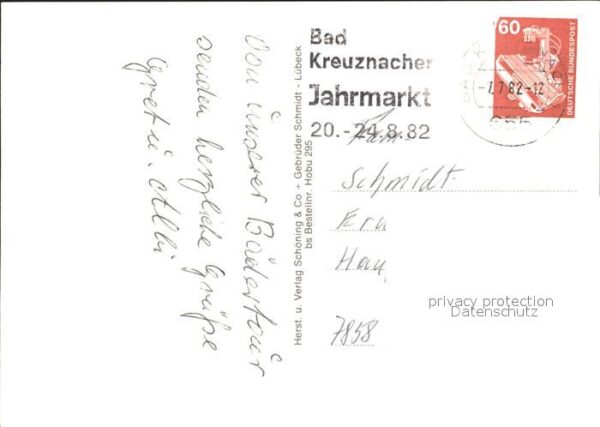 Von unserer Bädertour
senden herzliche Grüße
Gretu. Albi
Herst. u. Verlag Schöning & Co + Gebrüder Schmidt - Lübeck
bs Bestellnr. Hobu 295
Bad
Kreuznacher
Jahrmarkt
20.-24.8.82
60
DEUTSCHE BUNDESPOST
-7.7.82-12
655
Fam.
Schmidt
7858
privacy protection
Datenschutz